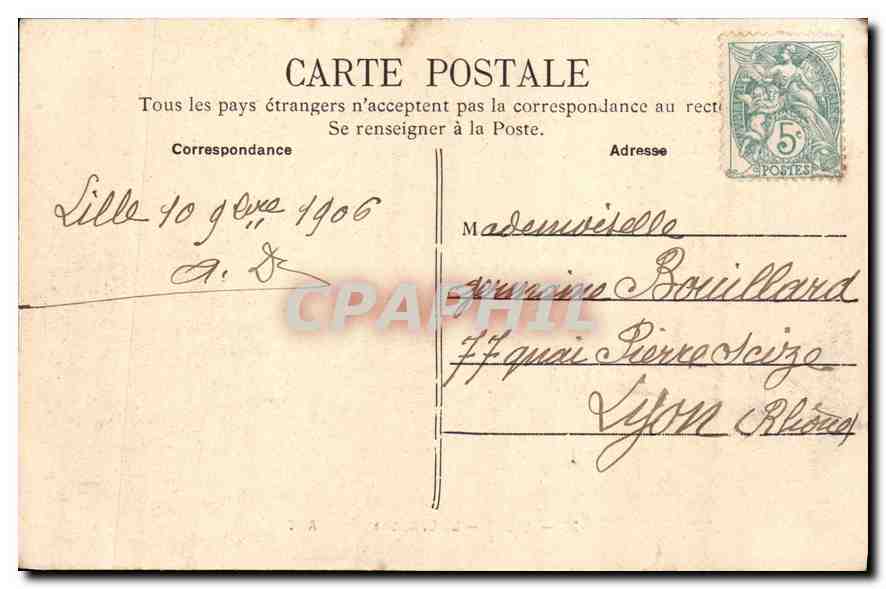 CARTE POSTALE
Tous les pays étrangers n'acceptent pas la correspondance au recto
Se renseigner à la Poste.
Correspondance
Adresse
5c
POSTES
Lille 10 9bre 1906
A. D
Mademoiselle
germaine Bouillard
77 quai Pierre Scize
Lyon (Rhône)
CPAPHIL